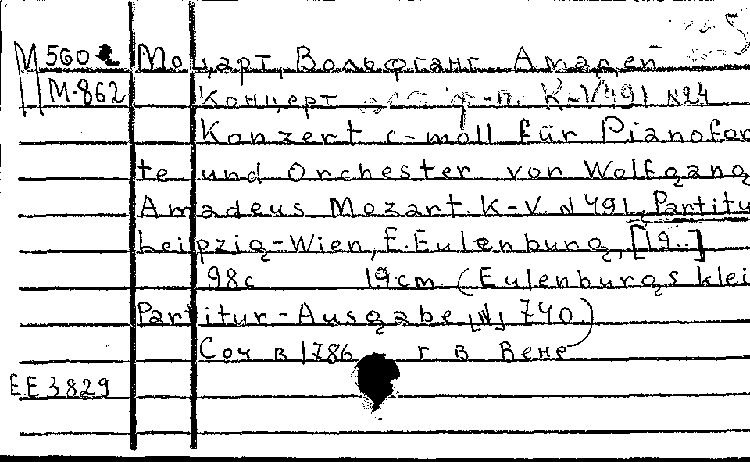 М 560 Моцарт, Вольфганг Амадей
М-862 Концерт ф-п. K-V 491 №24
Konzert c-moll für Pianofor
te und Orchester von Wolfgang
Amadeus Mozart. K-V. N 491. Partitu
Leipzig-Wien, E. Eulenburg, [19..]
98c 19cm (Eulenburgs klei
Partitur-Ausgabe, N 740)
Соч в 1786 г в Вене
EE 3829